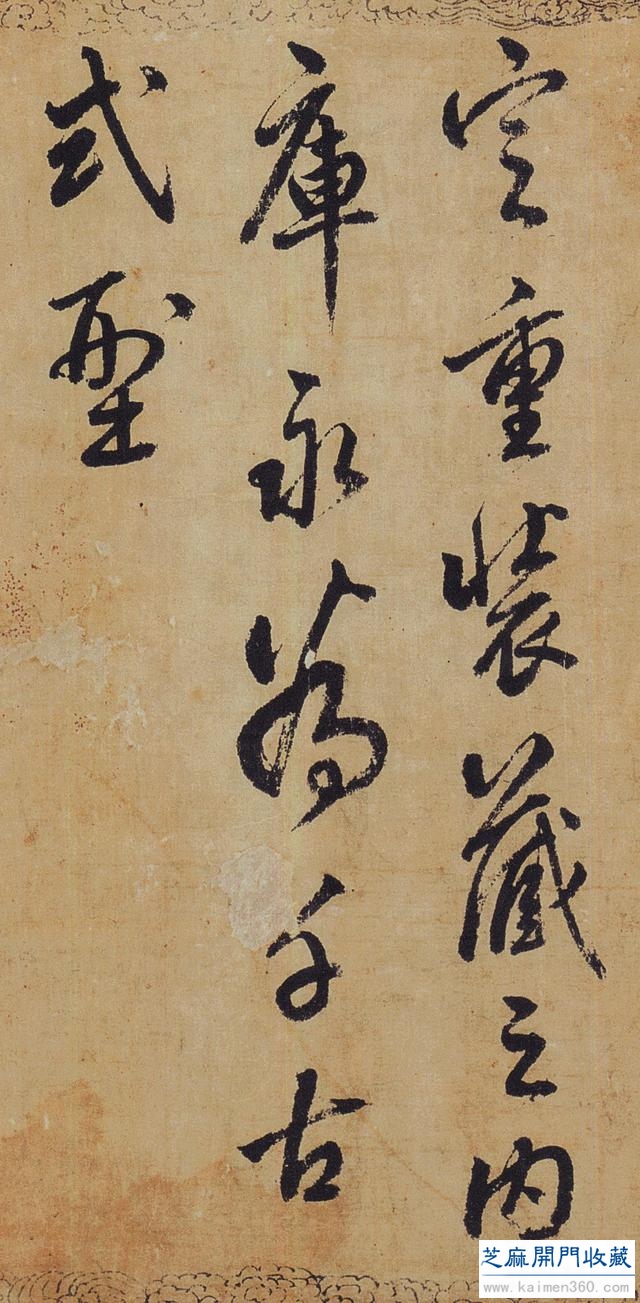 定重裝藏之內
庫永為千古
式型
芝麻開門收藏
www.kaimen360.com